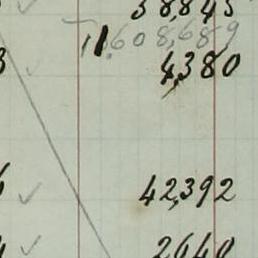 38,845
11,608,689
4,380
42,392
2640